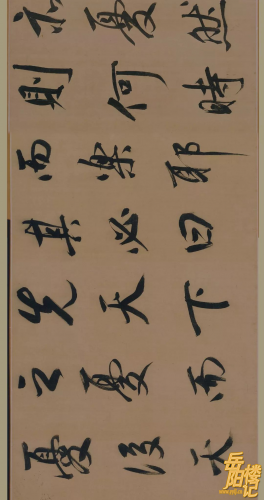 亦憂然
則何時
而樂耶
其必曰
先天下
之憂而
憂後天
岳阳楼记